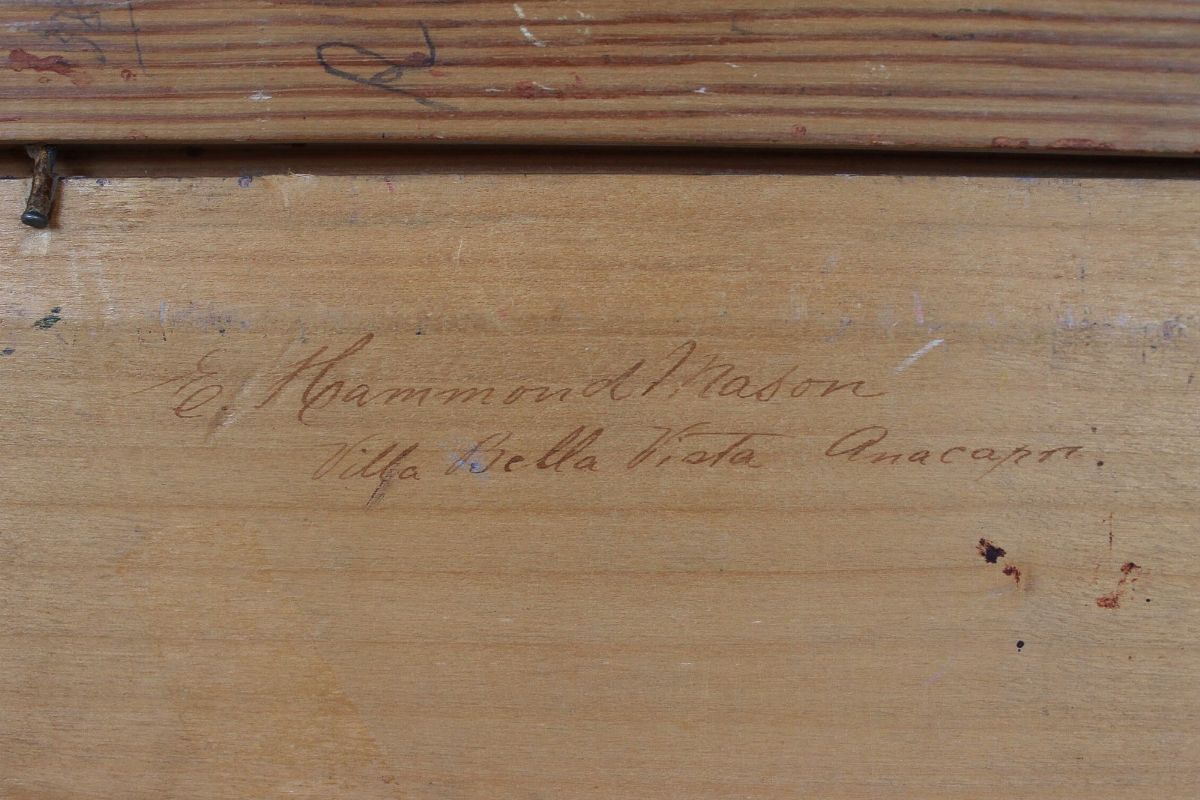 E. Hammond Mason
Villa Bella Vista Anacapri.